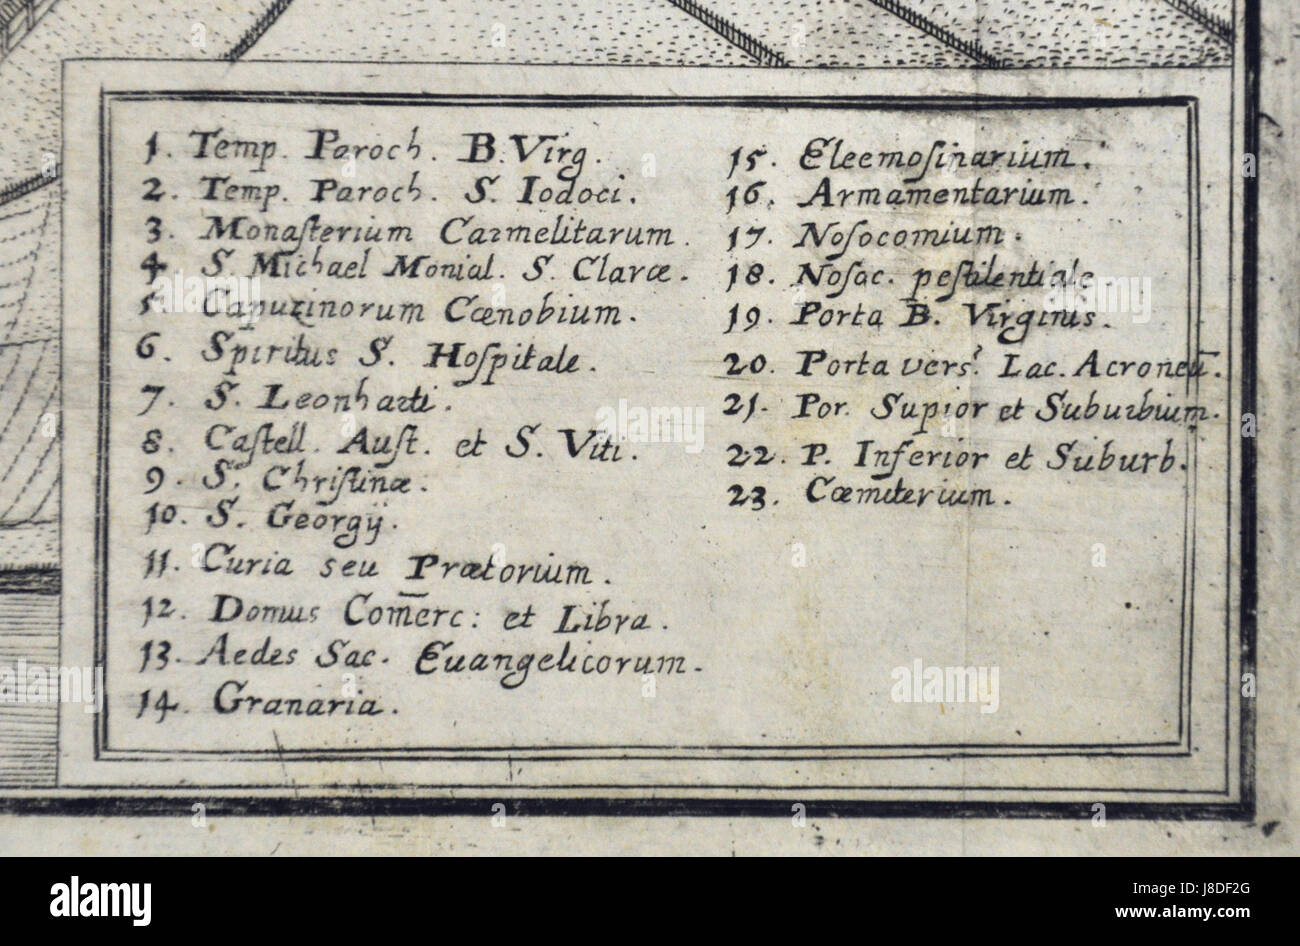 1. Temp. Paroch. B. Virg.
2. Temp. Paroch. S. Iodoci.
3. Monaſterium Carmelitarum.
4 S. Michael Monial. S. Claræ.
5. Capuzinorum Cœnobium.
6. Spiritus S. Hoſpitale.
7. S. Leonharti.
8. Caſtell. Auſt. et S. Viti.
9. S. Chriſtinæ.
10. S. Georgij.
11. Curia seu Prætorium.
12. Domus Com̄erc: et Libra.
13. Aedes Sac. Euangelicorum.
14. Granaria.
15. Eleemoſinarium.
16. Armamentarium.
17. Noſocomium.
18. Noſac. peſtilentiale.
19. Porta B. Virginis.
20. Porta vers? Lac. Acroneū.
21. Por. Supior et Suburbium.
22. P. Inferior et Suburb.
23. Cœmiterium.
alamy
alamy
alamy
alamy
alamy
alamy
Image ID: J8DF2G
www.alamy.com